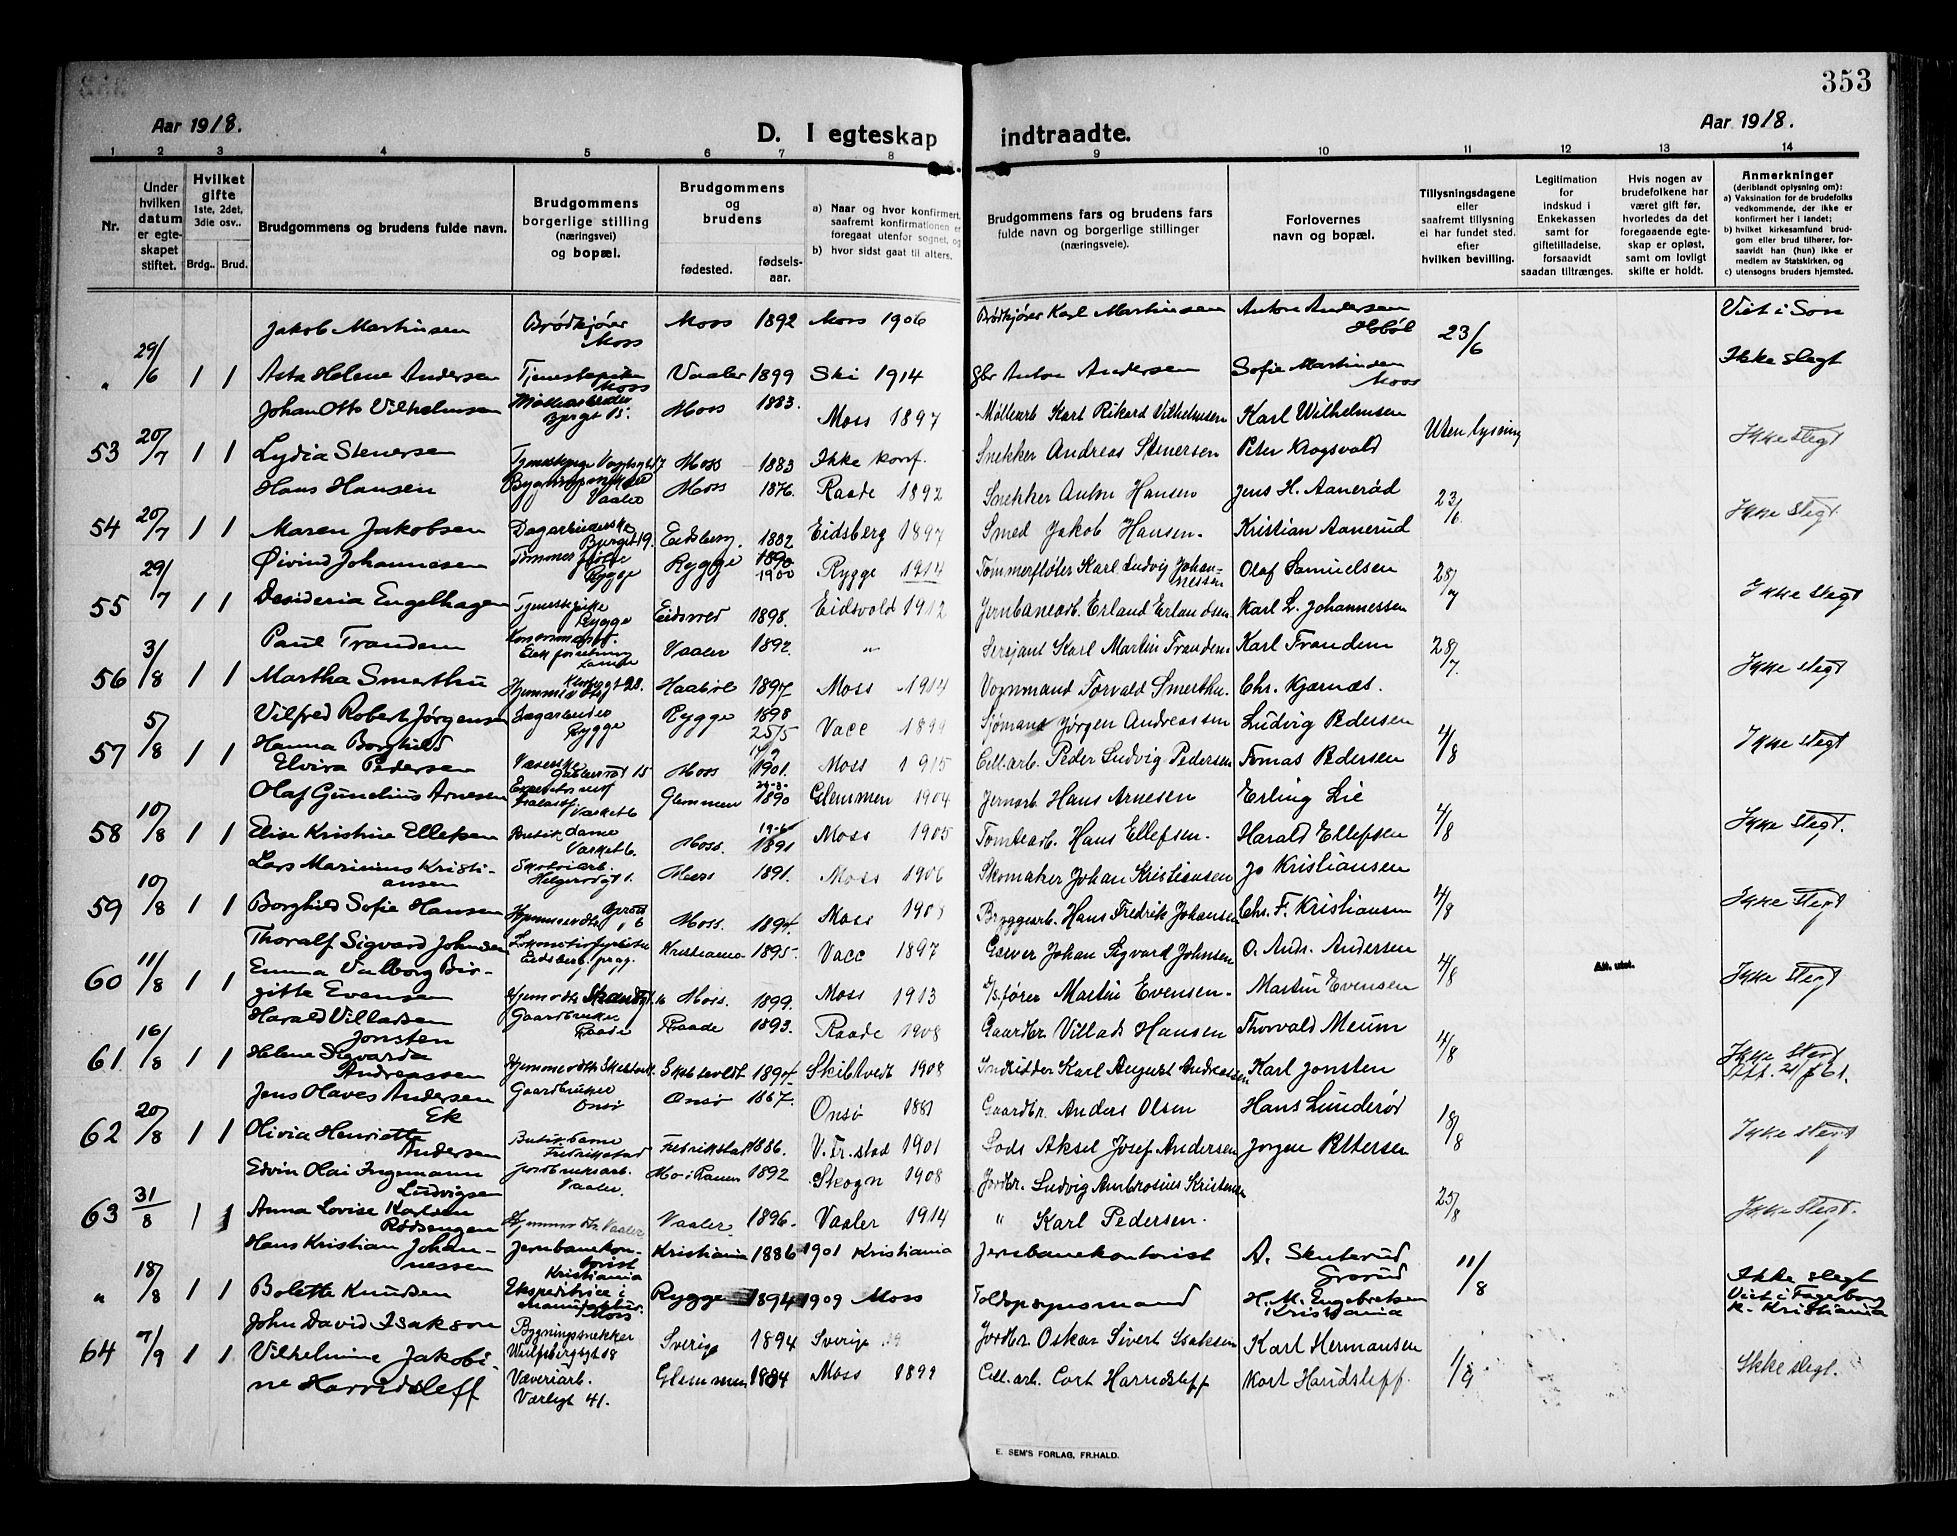 353
Aar 1918.
D. I egteskap indtraadte.
Aar 1918.
1 2 3 4 5 6 7 8 9 10 11 12 13 14
Nr.
Under hvilken datum er egteskapet stiftet.
Hvilket gifte 1ste, 2det, 3die osv..
Brdg.. Brud.
Brudgommens og brudens fulde navn.
Brudgommens borgerlige stilling (næringsvei) og bopæl.
Brudgommens og brudens
fødested. fødselsaar.
a) Naar og hvor konfirmert, saafremt konfirmationen er foregaat utenfor sognet, og
b) hvor sidst gaat til alters.
Brudgommens fars og brudens fars fulde navn og borgerlige stillinger (næringsveie).
Forlovernes navn og bopæl.
Tillysningsdagene eller saafremt tillysning ei har fundet sted. efter hvilken bevilling.
Legitimation for indskud i Enkekassen samt for giftetilladelse, forsaavidt saadan tiltrænges.
Hvis nogen av brudefolkene har været gift før, hvorledes da det foregaaende egteskap er opløst, samt om lovligt skifte er holdt.
Anmerkninger (deriblandt oplysning om):
a) Vaksination for de brudefolks vedkommende, der ikke er konfirmert her i landet;
b) hvilket kirkesamfund brudgom eller brud tilhører, forsaavidt han (hun) ikke er medlem av Statskirken, og
c) utensogns bruders hjemsted.
Jakob Martinsen Brødkjører Moss Moss 1892 Moss 1906 Brødkjører Karl Martinsen Anton Andersen Hobøl 23/6 Viet i Son
" 29/6 1 1 Asta Helene Andersen Tjenestepike Moss Vaaler 1899 Ski 1914 gbr Anton Andersen Sofie Martinsen Moss Ikke slegt
Johan Otto Vilhelmsen Møllearbeider Bjergt 15. Moss 1883. Moss 1897 Møllearb Karl Rikard Vilhelmsen Karl Wilhelmsen Uten lysning
53 20/7 1 1 Lydia Stenersen Moss 1883 Ikke konf. Snekker Andreas Stenersen Peter Krogsvold Ikke slegt
Hans Hansen Bygningssnekker Vaaler Moss 1876. Raade 1892 Snekker Anton Hansen Jens H. Aanerød 23/6.
54 20/7 1 1 Maren Jakobsen Bjergt 19. Eidsberg. 1882 Eidsberg 1897 Smed Jakob Hansen. Kristian Aanerud Ikke slegt
Øivind Johannesen Tømmerfløte Rygge Rygge 1890 1900 Rygge 1914 Tømmerfløter Karl Ludvig Johannessen Olaf Samuelsen 28/7
55 29/7 1 1 Desideria Engelhagen Tjenestepike Rygge 1898. Eidsvold 1912 Jernbanearb. Erland Erlandsen Karl L. Johannessen Ikke slegt
Paul Tranden Vaaler 1892. " Sersjant Karl Martin Tranden Karl Tranden 28/7.
56 3/8 1 1 Martha Smerthu Haabøl 1897 Moss 1914 Vognmand Torvald Smerthu. Chr. Kjærnæs. Ikke slegt
Vilfred Robert Jørgensen Dagarbeider Rygge Rygge 1898 25/5 1899 Sjømand Jørgen Andreassen Ludvig Pedersen 4/8
57 5/8 1 1 Hanna Borghild Elvira Pedersen Moss 1901. Moss 1915 Cell.arb. Peder Ludvig Pedersen Tomas Pedersen Ikke slegt
Olaf Gunelius Arnesen Værket 6 Glemmen 1890 Glemmen 1904 Jernarb. Hans Arnesen Erling Lie 4/8
58 10/8 1 1 Elise Kristine Ellefsen Butik.dame Værket 6. Moss. 1891 Moss 1905 Tomtearb. Hans Ellefsen. Harald Ellefsen Ikke slegt.
Lars Marinius Kristiansen Skotøiarb. Helgerødgt 1. Moss 1891. Moss 1906 Skomaker Johan Kristiansen Jo Kristiansen 4/8
59 10/8 1 1 Borghild Sofie Hansen Moss. 1894. Moss 1908 Bryggearb. Hans Fredrik Johansen Chr. F. Kristiansen Ikke slegt
Thoralf Sigvard Johnsen Kristiania 1895. 1897 Garver Johan Sigvard Johnsen O. Andr. Andersen 4/8 Att. utst.
60 11/8 1 1 Emma Valborg Birgitte Evensen Moss. 1899. Moss 1913 D/S.fører Martin Evensen. Martin Evensen Ikke slegt
Harald Villadsen Jonsten Gaardbruker Raade Raade 1893. Raade 1908 Gaardbr. Villads Hansen Thorvald Meum 4/8
61 16/8 1 1 Helene Sigvarda Andreassen 1894 Skibtvedt 1908 Karl August Andreassen Karl Jonsten Ikke slegt
Jens Olaves Andersen Ek Gaardbruker Onsø Onsø 1867. Onsø 1881 Gaardbr. Anders Olsen Hans Lunderød 18/8
62 20/8 1 1 Olivia Henriette Andersen Butikdame Fredrikstad Fredrikstad 1886. V. Fr.stad 1901 Lods Aksel Josef Andersen Jørgen Pettersen Ikke slegt
Edvin Olai Ingemann Ludvigsen Jordbruksarb. Vaaler. Mo i Ranen 1892 Skogn 1908 Jordbr. Ludvig Ambrosius Kristensen 25/8
63 31/8 1 1 Anna Lovise Karlsen Rødsengen Vaaler Vaaler. 1896. Vaaler 1914 " Karl Pedersen. Ikke slegt.
Hans Kristian Johannessen Jernbanekontorist Kristiania Kristiania 1886 1901 Kristiania Jernbanekontorist A. Skuterud Grorud 11/8
" 18/8 1 1 Bolette Knudsen Ekspeditrice i Moss Rygge 1894 1909 Moss Toldopsynsmand H. M. Engebretsen Kristiania Ikke slegt Viet i Fagerborg k. Kristiania
John David Isakson Bygningssnekker Sverige 1894 Sverige Jordbr. Oskar Sivert Isaksen Karl Hermansen 1/9
64 7/9 1 1 Vilhelmine Jakobine Harridsleff Væveriarb. Værlegt 41. Glemmen 1884 Moss 1899 Cell.arb. Cort Harridsleff Kort Haridsleff. Ikke slegt.
E. SEM'S FORLAG, FR.HALD.